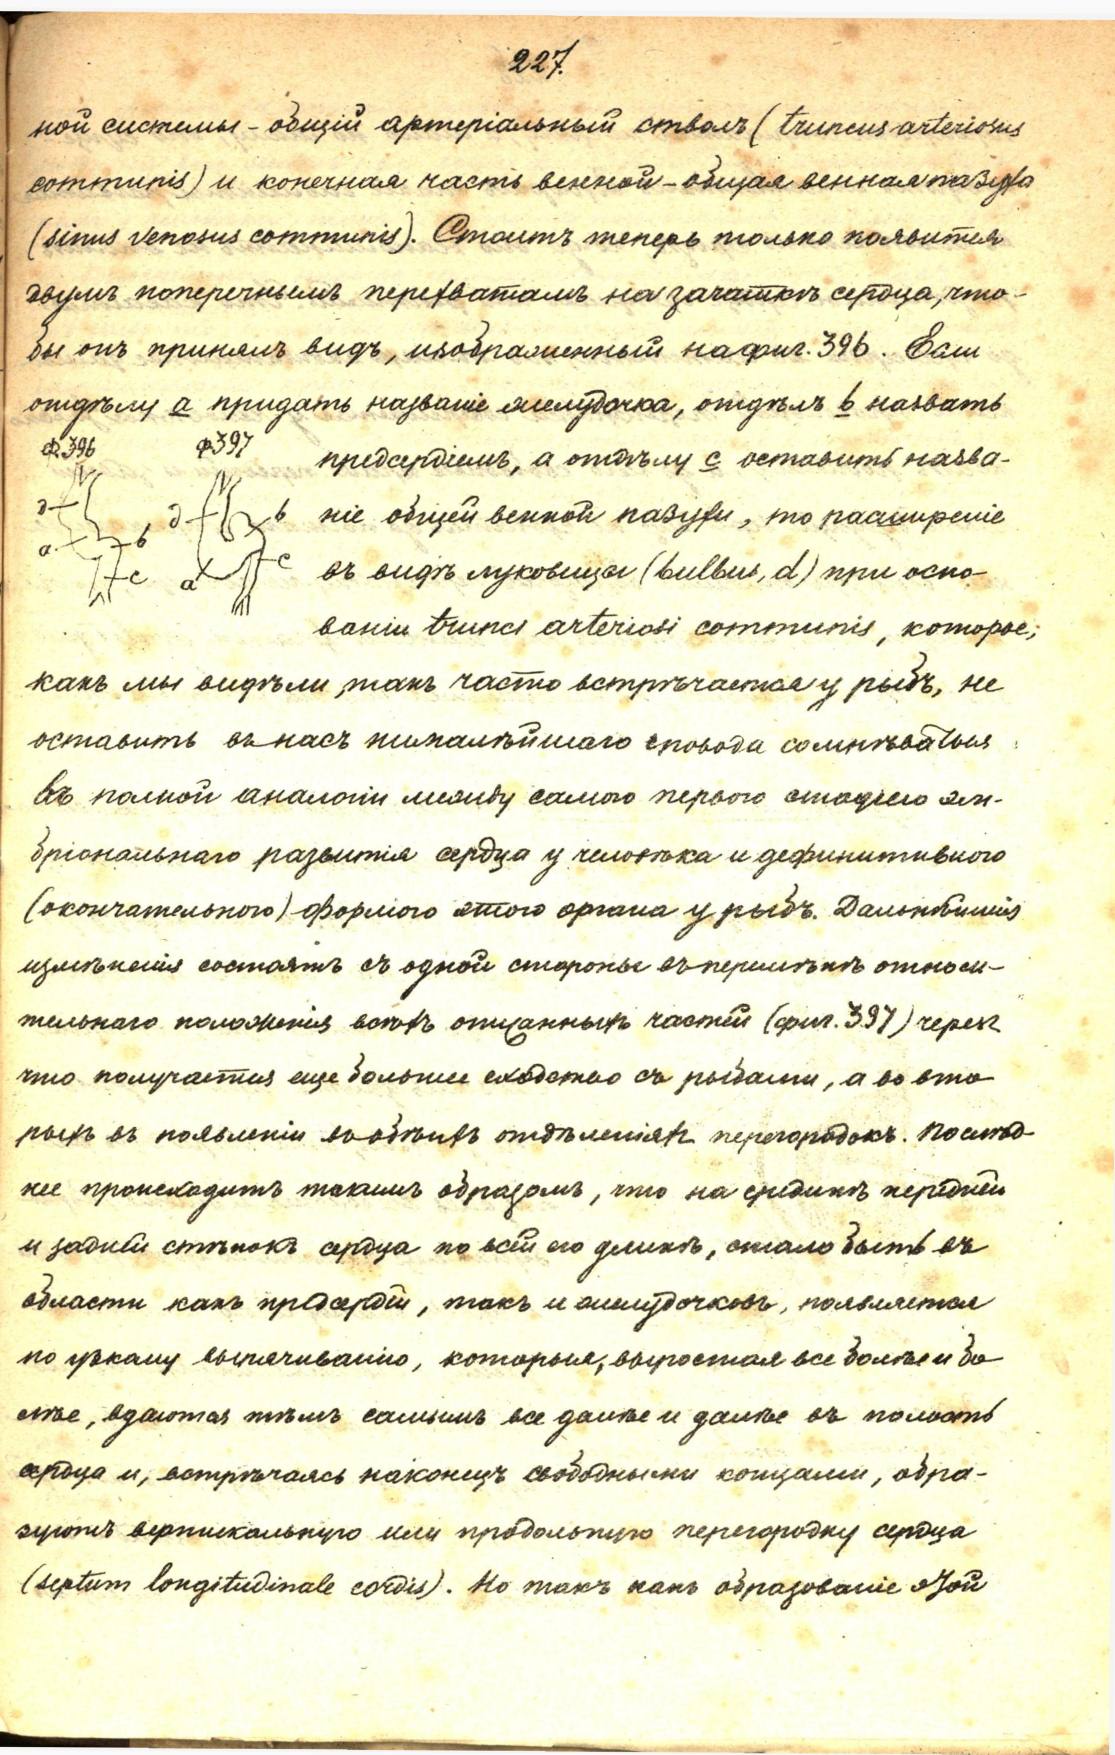 227.
ной системы - общій артеріальный стволъ (truncus arteriosus
communis) и конечная часть венной - общая венная пазуха
(sinus venosus communis). Стоитъ теперь только появится
двумъ поперечнымъ перехватамъ на зачаткѣ сердца, что-
бы онъ принялъ видъ, изображенный на фиг. 396. Если
отдѣлу a придать названіе желудочка, отдѣлъ b назвать
ф. 396 ф 397
предсердіемъ, а отдѣлу c оставить назва-
д b д b
a c a c
ніе общей венной пазухи, то расширеніе
въ видѣ луковицы (bulbus, d) при осно-
ваніи trunci arteriosi communis, которое,
какъ мы видѣли, такъ часто встрѣчается у рыбъ, не
оставитъ въ насъ ни малѣйшаго повода сомнѣваться
въ полной аналогіи между самою первою стадіею эм-
бріональнаго развитія сердца у человѣка и дефинитивною
(окончательною) формою этого органа у рыбъ. Дальнѣйшія
измѣненія состоятъ съ одной стороны въ перемѣнѣ относи-
тельнаго положенія всѣхъ описанныхъ частей (фиг. 397) черезъ
что получается еще большее сходство съ рыбами, а во вто-
рыхъ въ появленіи въ обѣихъ отдѣленіяхъ перегородокъ. Послѣд-
нее происходитъ такимъ образомъ, что на срединѣ передней
и задней стѣнокъ сердца по всей его длинѣ, стало быть въ
области какъ предсердій, такъ и желудочковъ, появляется
по узкому выпячиванію, которыя, выростая все болѣе и бо-
лѣе, вдаются тѣмъ самымъ все далѣе и далѣе въ полость
сердца и, встрѣчаясь наконецъ свободными концами, обра-
зуютъ вертикальную или продольную перегородку сердца
(septum longitudinale cordis). Но такъ какъ образованіе этой